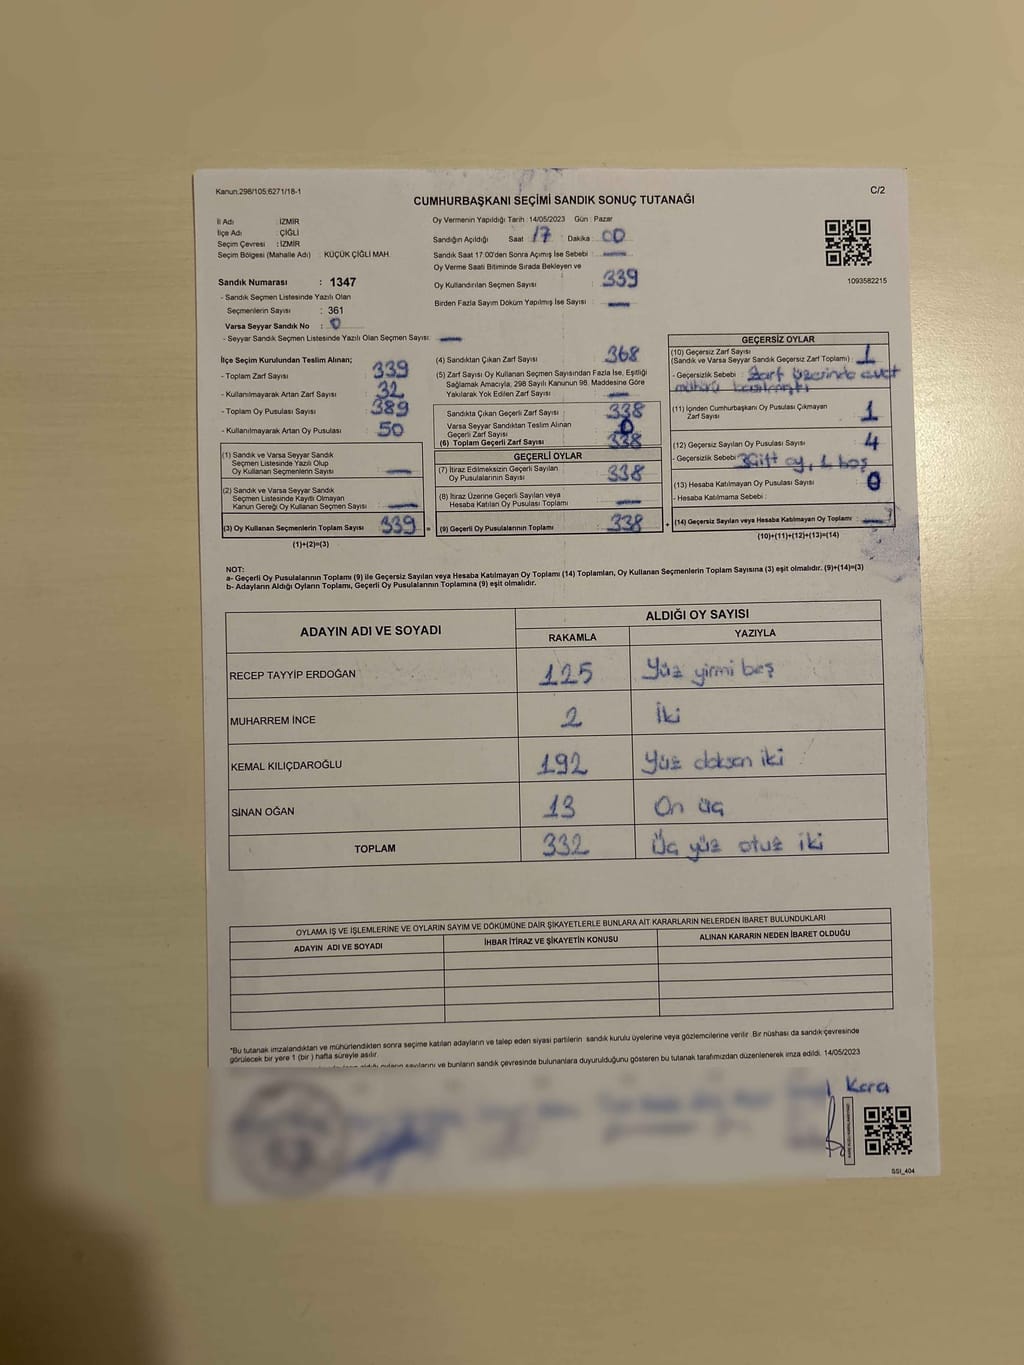 Kanun.298/105;6271/18-1
C/2
CUMHURBAŞKANI SEÇİMİ SANDIK SONUÇ TUTANAĞI
İl Adı : İZMİR
İlçe Adı : ÇİĞLİ
Seçim Çevresi : İZMİR
Seçim Bölgesi (Mahalle Adı) : KÜÇÜK ÇİĞLİ MAH.
Sandık Numarası : 1347
- Sandık Seçmen Listesinde Yazılı Olan
Seçmenlerin Sayısı : 361
Varsa Seyyar Sandık No : 0
- Seyyar Sandık Seçmen Listesinde Yazılı Olan Seçmen Sayısı: —
Oy Vermenin Yapıldığı Tarih :14/05/2023 Gün : Pazar
Sandığın Açıldığı Saat 17 Dakika : 00
Sandık Saat 17:00'den Sonra Açımış İse Sebebi : —
Oy Verme Saati Bitiminde Sırada Bekleyen ve
Oy Kullandırılan Seçmen Sayısı : 339
Birden Fazla Sayım Döküm Yapılmış İse Sayısı : —
1093582215
İlçe Seçim Kurulundan Teslim Alınan;
- Toplam Zarf Sayısı : 339
- Kullanılmayarak Artan Zarf Sayısı : 32
- Toplam Oy Pusulası Sayısı : 389
- Kullanılmayarak Artan Oy Pusulası : 50
(1) Sandık ve Varsa Seyyar Sandık
Seçmen Listesinde Yazılı Olup
Oy Kullanan Seçmenlerin Sayısı : —
(2) Sandık ve Varsa Seyyar Sandık
Seçmen Listesinde Kayıtlı Olmayan
Kanun Gereği Oy Kullanan Seçmen Sayısı : —
(3) Oy Kullanan Seçmenlerin Toplam Sayısı : 339 =
(1)+(2)=(3)
(4) Sandıktan Çıkan Zarf Sayısı : 368
(5) Zarf Sayısı Oy Kullanan Seçmen Sayısından Fazla İse, Eşitliği
Sağlamak Amacıyla, 298 Sayılı Kanunun 98. Maddesine Göre
Yakılarak Yok Edilen Zarf Sayısı : —
Sandıkta Çıkan Geçerli Zarf Sayısı : 338
Varsa Seyyar Sandıktan Teslim Alınan
Geçerli Zarf Sayısı : 0
(6) Toplam Geçerli Zarf Sayısı : 338
GEÇERLİ OYLAR
(7) İtiraz Edilmeksizin Geçerli Sayılan
Oy Pusulasının Sayısı : 338
(8) İtiraz Üzerine Geçerli Sayılan veya
Hesaba Katılan Oy Pusulası Toplamı : —
(9) Geçerli Oy Pusulalarının Toplamı : 338 +
GEÇERSİZ OYLAR
(10) Geçersiz Zarf Sayısı
(Sandık ve Varsa Seyyar Sandık Geçersiz Zarf Toplamı) : 1
- Geçersizlik Sebebi : Zarf üzerinde evet
mührü basılmıştı
(11) İçinden Cumhurbaşkanı Oy Pusulası Çıkmayan
Zarf Sayısı : 1
(12) Geçersiz Sayılan Oy Pusulası Sayısı : 4
- Geçersizlik Sebebi : 3 Çift oy, 1 boş
(13) Hesaba Katılmayan Oy Pusulası Sayısı : 0
- Hesaba Katılmama Sebebi :
(14) Geçersiz Sayılan veya Hesaba Katılmayan Oy Toplamı : —
(10)+(11)+(12)+(13)=(14)
NOT:
a- Geçerli Oy Pusulalarının Toplamı (9) ile Geçersiz Sayılan veya Hesaba Katılmayan Oy Toplamı (14) Toplamları, Oy Kullanan Seçmenlerin Toplam Sayısına (3) eşit olmalıdır. (9)+(14)=(3)
b- Adayların Aldığı Oyların Toplamı, Geçerli Oy Pusulalarının Toplamına (9) eşit olmalıdır.
ADAYIN ADI VE SOYADI
ALDIĞI OY SAYISI
RAKAMLA YAZIYLA
RECEP TAYYİP ERDOĞAN 125 Yüz yirmi beş
MUHARREM İNCE 2 İki
KEMAL KILIÇDAROĞLU 192 Yüz doksan iki
SİNAN OĞAN 13 On üç
TOPLAM 332 Üç yüz otuz iki
OYLAMA İŞ VE İŞLEMLERİNE VE OYLARIN SAYIM VE DÖKÜMÜNE DAİR ŞİKAYETLERLE BUNLARA AİT KARARLARIN NELERDEN İBARET BULUNDUKLARI
ADAYIN ADI VE SOYADI İHBAR İTİRAZ VE ŞİKAYETİN KONUSU ALINAN KARARIN NEDEN İBARET OLDUĞU
"Bu tutanak imzalandıktan ve mühürlendikten sonra seçime katılan adayların ve talep eden siyasi partilerin sandık kurulu üyelerine veya gözlemcilerine verilir. Bir nüshası da sandık çevresinde
görülecek bir yere 1 (bir ) hafta süreyle asılır.
aldığı oyların sayılarını ve bunların sandık çevresinde bulunanlara duyurulduğunu gösteren bu tutanak tarafımızdan düzenlenerek imza edildi. 14/05/2023
Kara
SSI_404